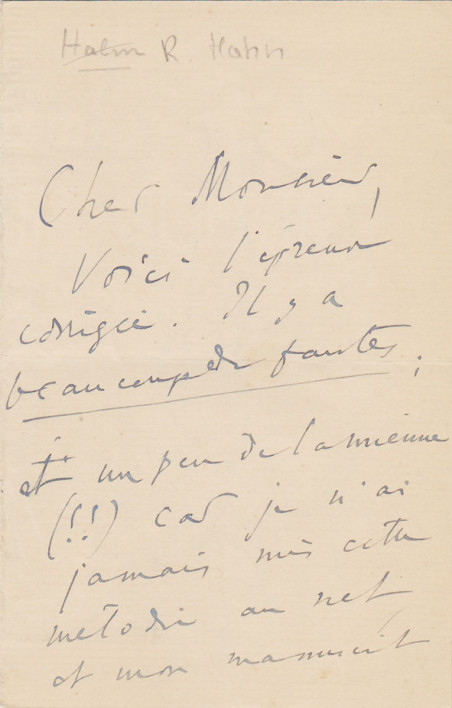 Hahn R. Hahn
Cher Monsieur,
Voici l'épreuve
corrigée. Il y a
beaucoup de fautes,
et un peu de la mienne
(!!) car je n'ai
jamais mis cette
mélodie au net
et mon manuscrit